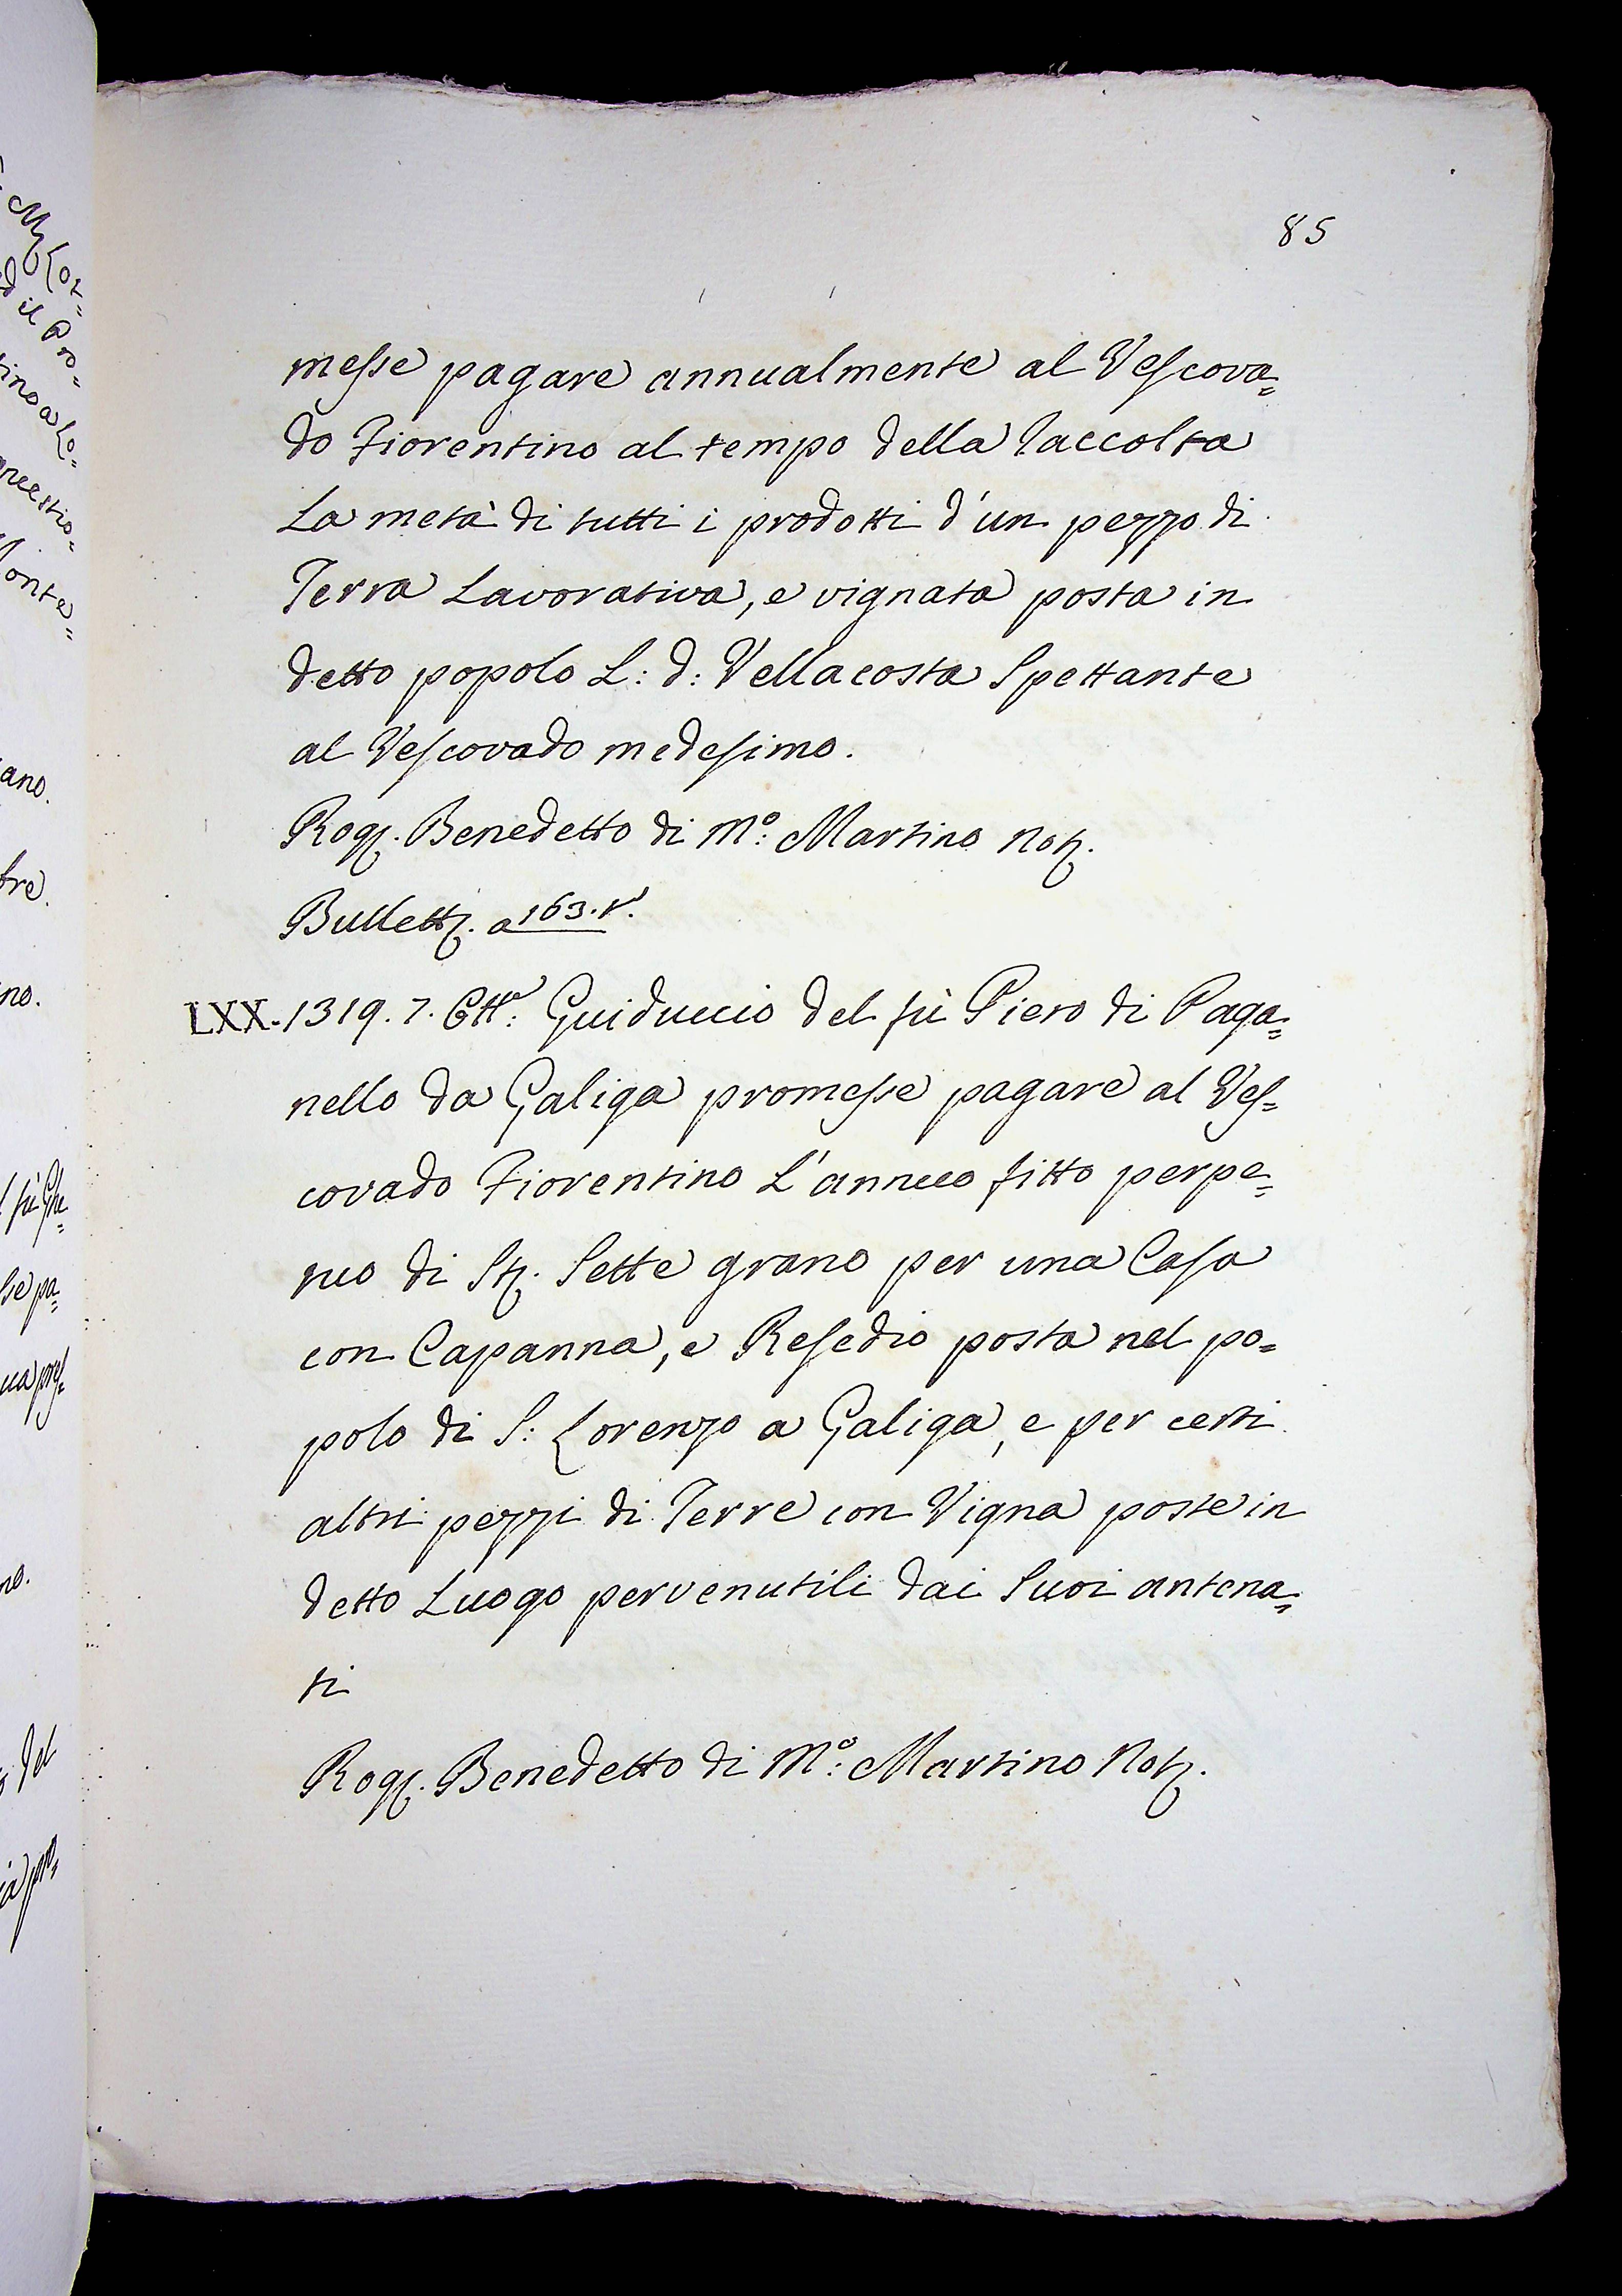 85
messe pagare annualmente al Vescova=
do Fiorentino al tempo della Raccolta
La metà di tutti i prodotti d'un pezzo di
Terra Lavorativa, e vignata posta in
detto popolo L: d: Vellacosta Spettante
al Vescovado medesimo.
Rog. Benedetto di M:º Martino Not.
Bullett. a 163. v.
LXX. 1319. 7. Ott:e Guiduccio del fù Piero di Paga=
nello da Galiga promesse pagare al Ves=
covado Fiorentino L'annuo fitto perpe=
tuo di St. Sette grano per una Casa
con Capanna, e Resedio posta nel po=
polo di S: Lorenzo a Galiga, e per certi
altri pezzi di Terre con Vigna poste in
detto Luogo pervenutili dai Suoi antena=
ti
Rog. Benedetto di M:º Martino Not.